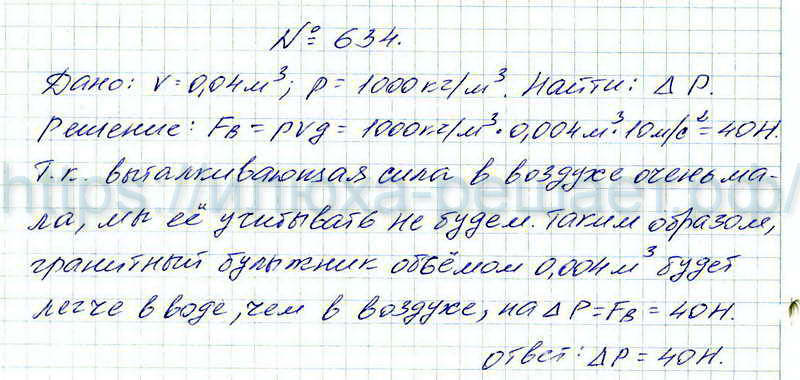 № 634.
Дано: V=0,04м³; ρ= 1000кг/м³. Найти: ΔP.
Решение: Fв=ρVg= 1000кг/м³·0,004м³·10м/с²=40Н.
Т.к. выталкивающая сила в воздухе очень ма-
ла, мы её учитывать не будем. Таким образом,
гранитный булыжник объёмом 0,004м³ будет
легче в воде, чем в воздухе, на ΔP=Fв=40Н.
ответ: ΔP=40Н.